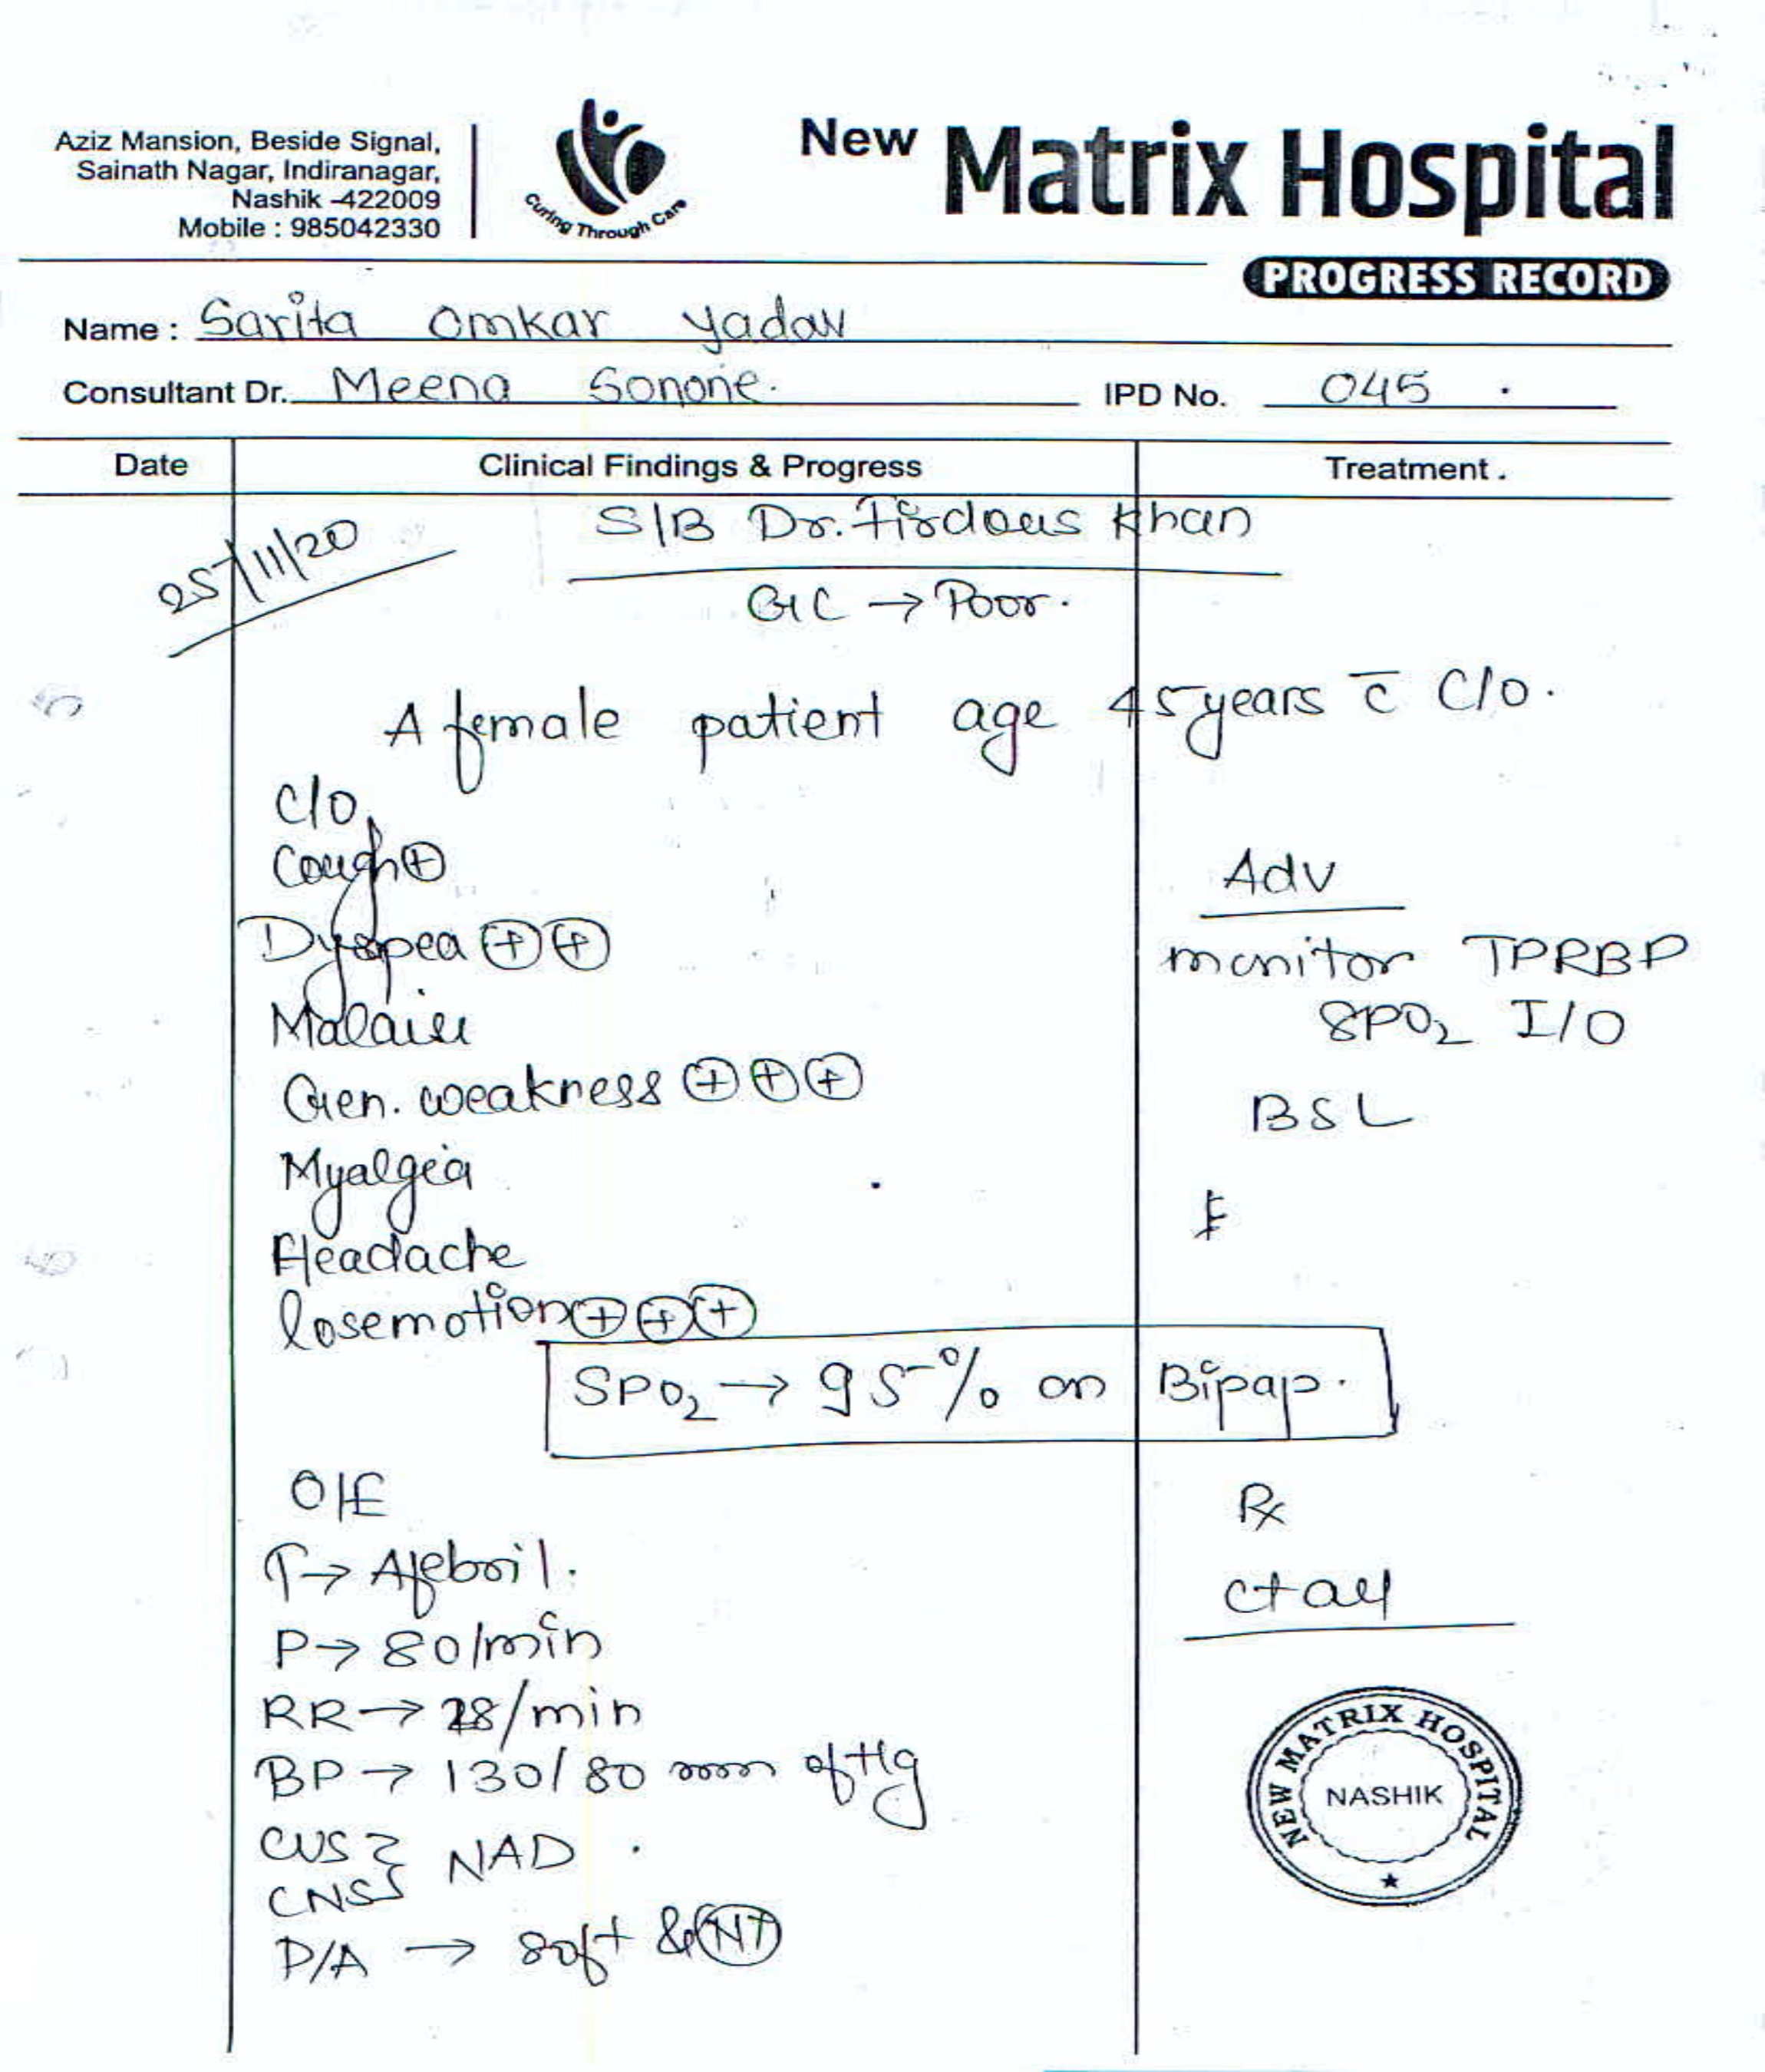 Aziz Mansion, Beside Signal,
Sainath Nagar, Indiranagar,
Nashik -422009
Mobile : 985042330
Curing Through Care
New Matrix Hospital
PROGRESS RECORD
Name : Sarita Omkar Yadav
Consultant Dr. Meena Sonone.
IPD No. 045
Date
Clinical Findings & Progress
Treatment .
25/11/20
S/B Dr. Firdous Khan
GC → Poor.
A female patient age 45 years c̄ C/O.
C/O
Cough ⊕
Dyspea ⊕⊕
Malaise
Gen. weakness ⊕⊕⊕
Myalgia
Headache
losemotion ⊕⊕⊕
Adv
monitor TPRBP
SPO₂ I/O
BSL
SPO₂ → 95% on Bipap.
O/E
T → Afebril.
P → 80/min
RR → 28/min
BP → 130/80 mm of Hg
CVS } NAD
CNS
P/A → soft & NT
Rx
ct all
NEW MATRIX HOSPITAL
NASHIK